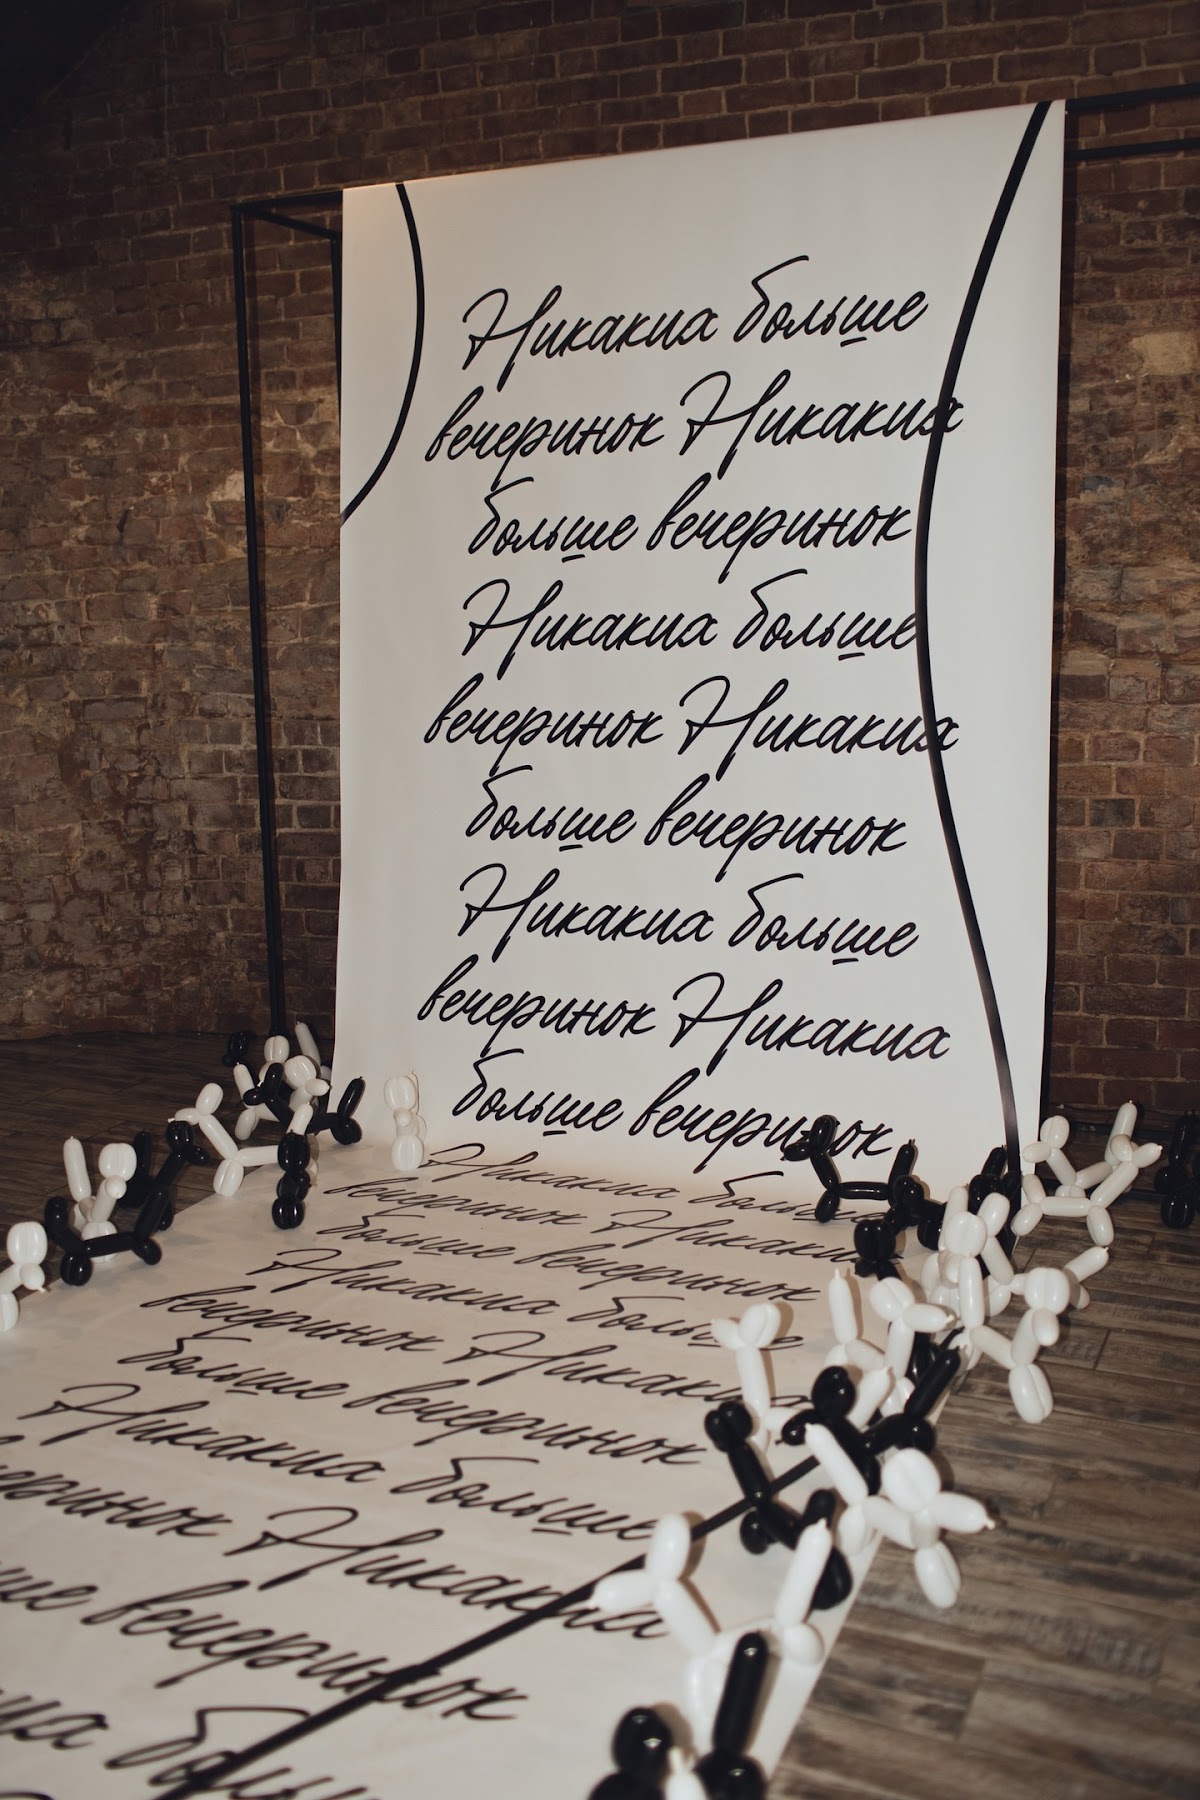 Никаких больше
вечеринок Никаких
больше вечеринок
Никаких больше
вечеринок Никаких
больше вечеринок
Никаких больше
вечеринок Никаких
больше вечеринок
Никаких больше
вечеринок Никаких
больше вечеринок
Никаких больше
вечеринок Никаких
больше вечеринок
Никаких больше
вечеринок Никаких
больше вечеринок